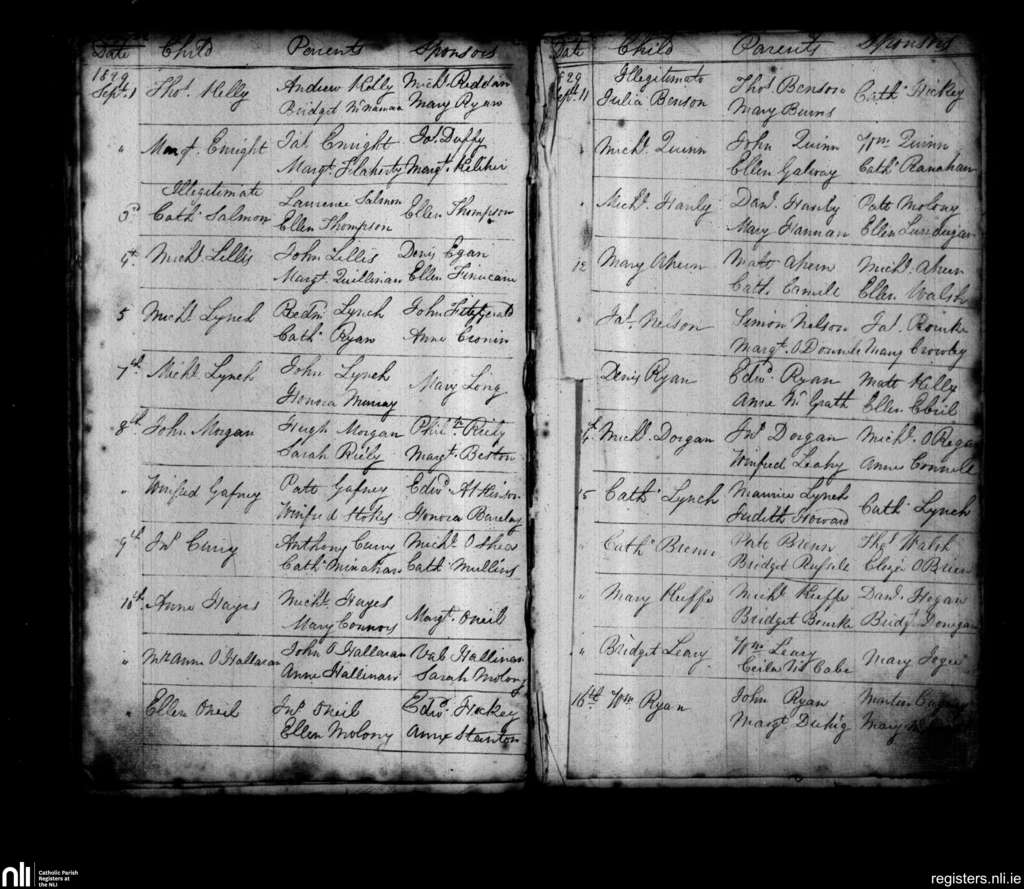 Date Child Parents Sponsors
1829
Septr. 1 Thos. Kelly Andrew Kelly Michl. Reddan
Bridget McNamara Mary Ryan
" Margt. Enright Jas. Enright Jas. Duffy
Margt. Flaherty Margt. Keliher
Illegitimate Laurence Salmon
3d Cath. Salmon Ellen Thompson Ellen Thompson
4th. Michl. Lillis John Lillis Denis Egan
Margt. Quillinan Ellen Finucan
5 Michl. Lynch Redm. Lynch John Fitzgerald
Cath. Ryan Anne Cronin
7th. Michl. Lynch John Lynch Mary Long
Honora Murray
8th. John Morgan Hugh Morgan Riely
Sarah Riely Margt. Beston
" Winifred Gafney Patt Gafney Edwd. Atkinson
Winifred Stokes Honora Barclay
9th Jno. Curry Anthony Curry Michl. O Shea
Cath. Minahan Cath. Mullins
10th. Anne Hayes Michl. Hayes Margt. Oneil
Mary Connors
" Anne O Hallaran John O Hallaran Val. Hallinan
Anne Hallinan Sarah Molony
" Ellen Oneil Jno. Oneil Edwd. Hickey
Ellen Molony Anne Stanton
Date Child Parents Sponsors
1829 Illegitimate
Septr. 11 Julia Benson Thos. Benson Cath. Hickey
Mary Burns
" Michl. Quinn John Quinn Wm. Quinn
Ellen Galway Cath. Ranahan
" Michl. Hanly Danl. Hanly Patt Molony
Mary Hannan Ellen
12 Mary Ahern Matt Ahern Michl. Ahern
Cath. Ellen Walsh
" Jas. Nelson Simon Nelson Jas. Rourke
Margt. O Donnell Mary Crowley
Denis Ryan Edwd. Ryan Matt Kelly
Anne McGrath Ellen
Michl. Dorgan Jno. Dorgan Michl. O Regan
Winifred Leahy Anne Connell
15 Cath. Lynch Maurice Lynch Cath. Lynch
Judith Howard
" Cath. Brenn Patt Brenn Thos. Walsh
Bridget Russele O Brien
" Mary Keeffe Michl. Keeffe Danl. Hogan
Bridget Bourke Bridgt. Donegan
" Bridget Leary Wm. Leary Mary
16th. Wm. Ryan John Ryan Martin
Margt. Duhig Mary
nli
Catholic Parish
Registers at
the NLI
registers.nli.ie